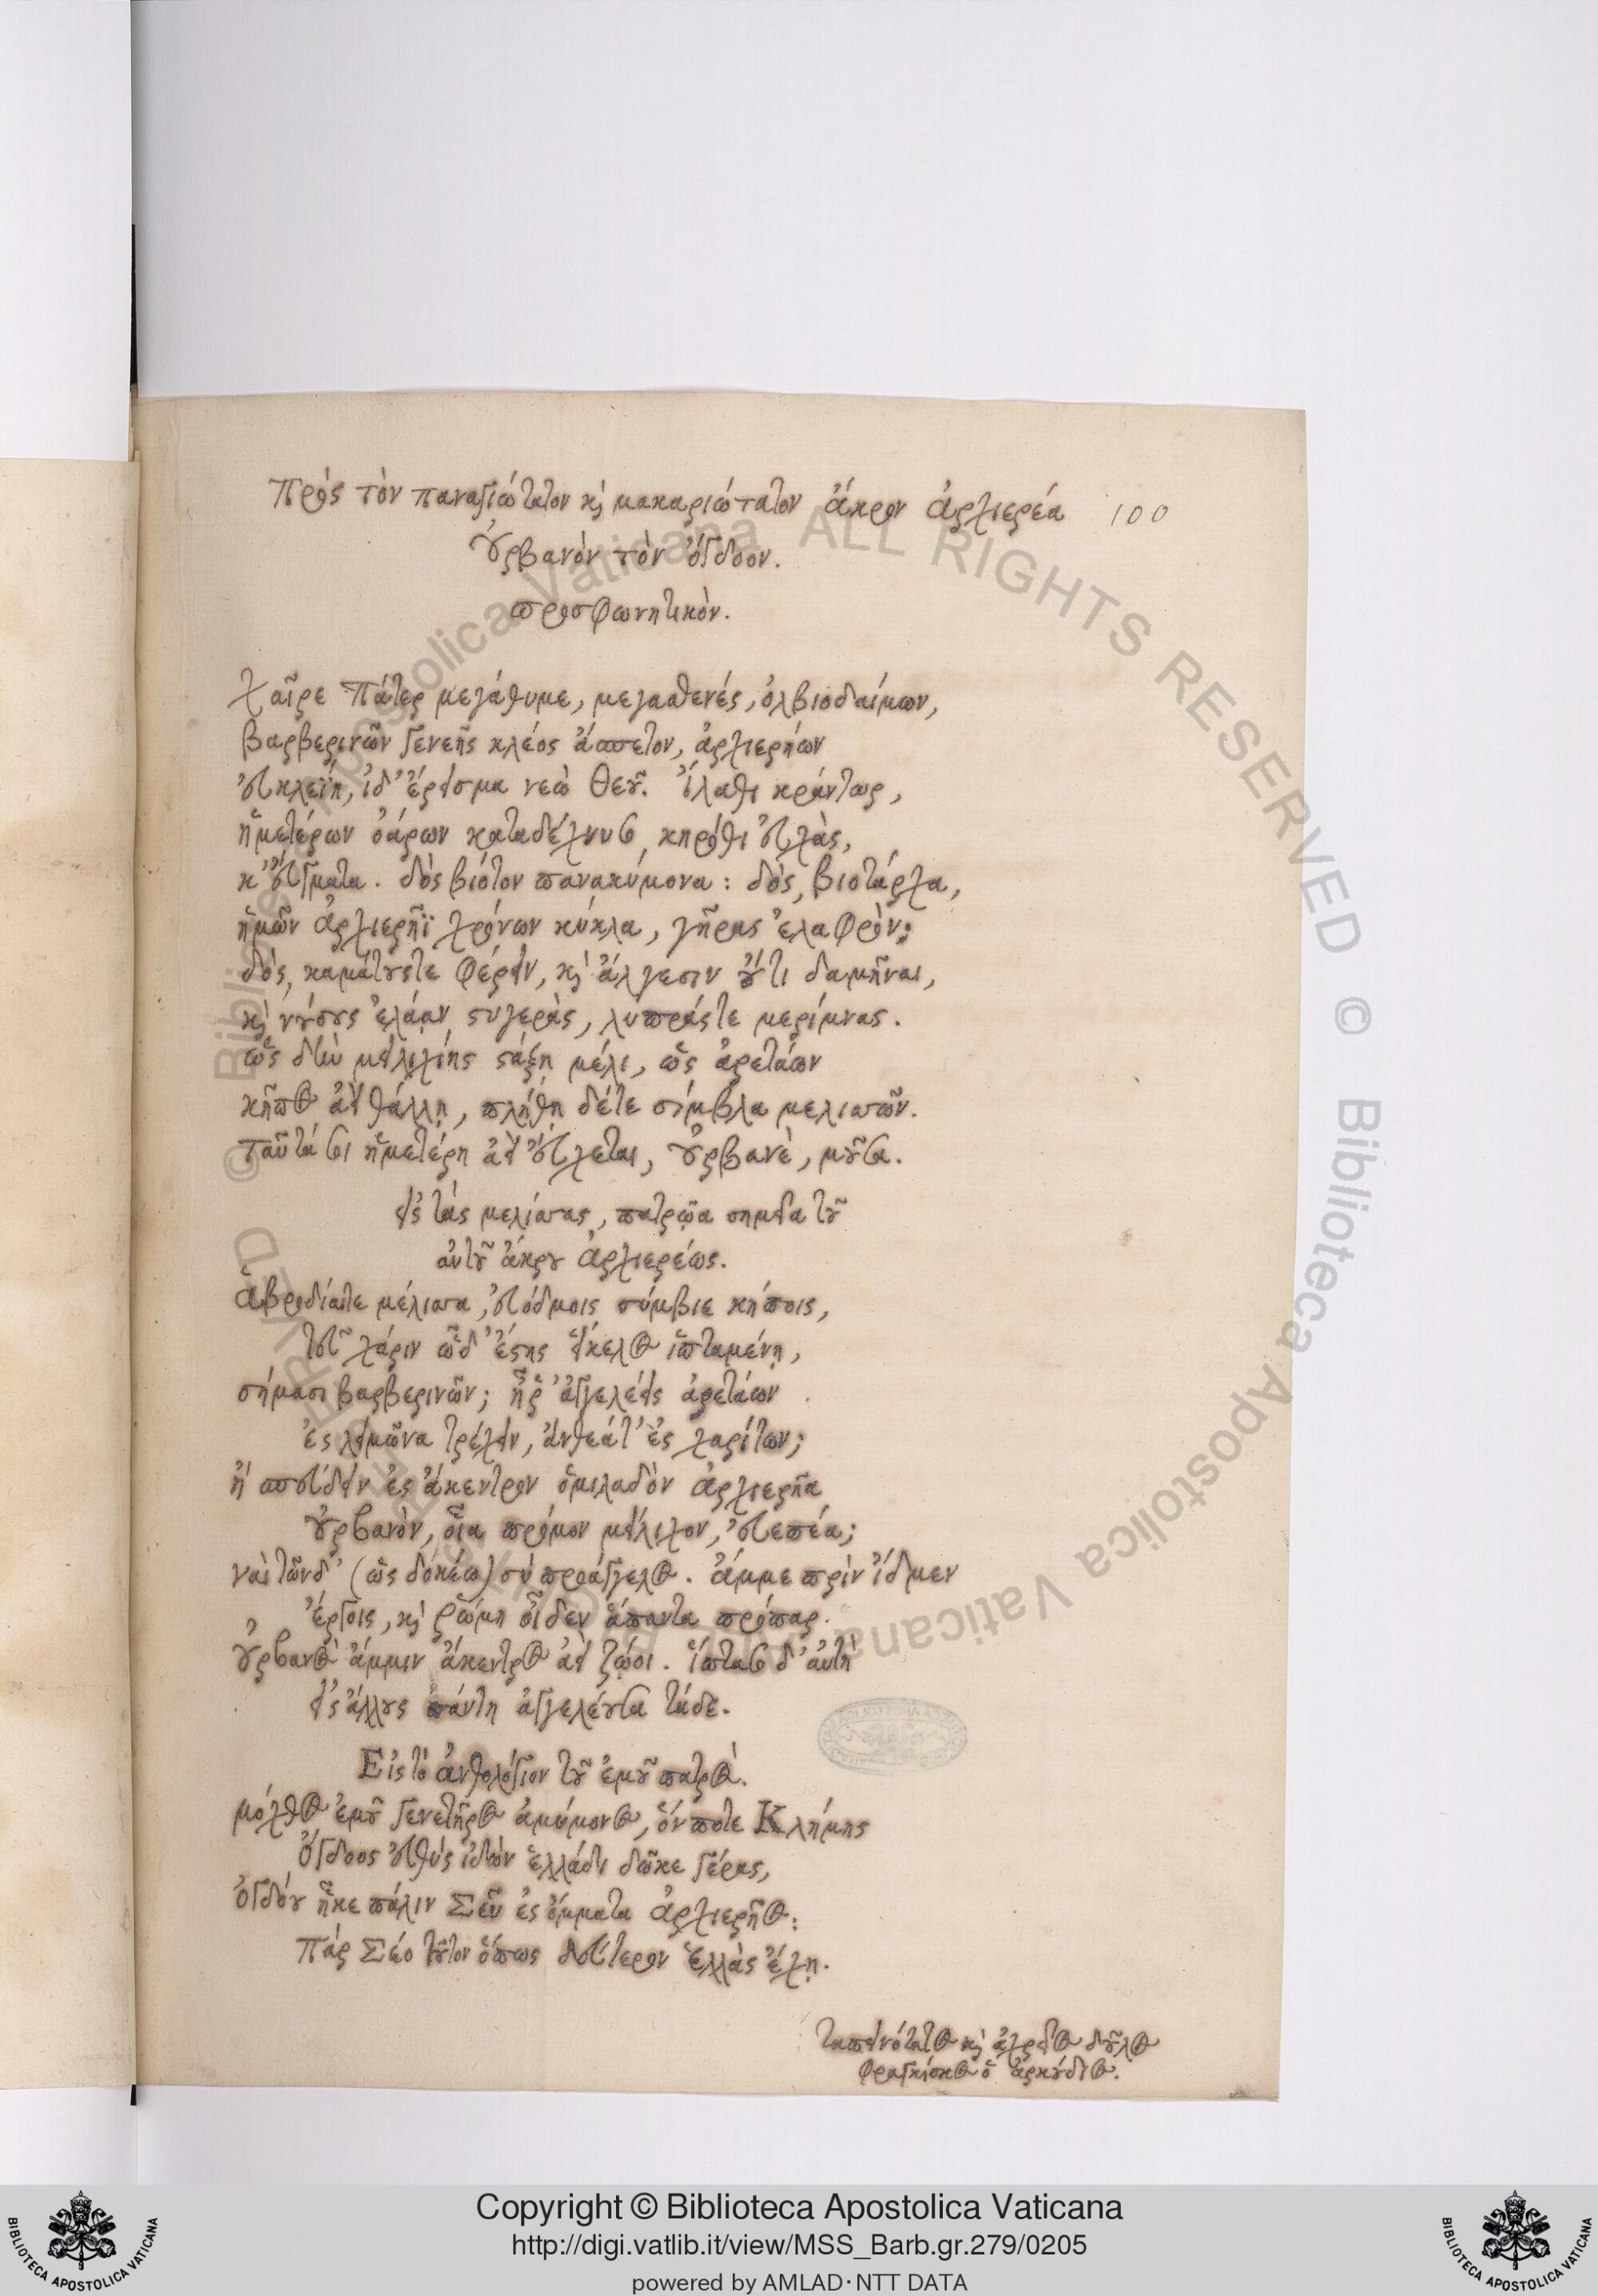 Πρὸς τὸν παναγιώτατον καὶ μακαριώτατον ἄκρον ἀρχιερέα 100
Οὐρβανὸν τὸν ὄγδοον.
προσφωνητικὸν.
Χαῖρε Πάτερ μεγάθυμε, μεγασθενές, ὀλβιοδαίμων,
Βαρβερινῶν γενεῆς κλέος ἄσπετον, ἀρχιερήων
εὐκλείη, ἰδ' ἔρεισμα νεὼ Θεοῦ. ἵλαθι κράντωρ,
ἡμετέρων ὀάρων καταδέχνυσο, κηρόθι εὐχὰς,
κ' εὔγματα. δὸς βίοτον πανακύμονα: δὸς, βιοτάρχα,
ἡμῶν ἀρχιερῆϊ χρόνων κύκλα, γῆρας ἐλαφρὸν:
δὸς, καμάτουςτε φέρειν, καὶ ἄλγεσιν οὔτι δαμῆναι,
καὶ νούσους ἐλάαν στυγερὰς, λυπράςτε μερίμνας.
ὡς δὴν μειλιχίης στάξῃ μέλι, ὡς ἀρετάων
κῆπος ἀεὶ θάλλῃ, πλήθῃ δέτε σίμβλα μελισσῶν.
ταῦτά σοι ἡμετέρη ἀεὶ εὔχεται, Οὐρβανὲ, μοῦσα.
εἰς τὰς μελίσσας, πατρῷα σημεῖα τοῦ
αὐτοῦ ἄκρου ἀρχιερέως.
ἁβροδίαιτε μέλισσα, εὐόδμοις σύμβιε κήποις,
τεῦ χάριν ὧδ' ἔστης εἵκελος ἱπταμένῃ,
σήμασι βαρβερινῶν; ἦρ' ἀγγελέεις ἀρετάων
ἐς λειμῶνα τρέχειν, ἄνθεάτ' ἐς χαρίτων;
ἢ σπεύδειν ἐς ἄκεντρον ὁμιλαδὸν ἀρχιερῆα
Οὐρβανὸν, οἷα πρόμον μείλιχον, εὐεπέα;
ναὶ τῶνδ' (ὡς δοκέω) σὺ προάγγελος. ἄμμε πρὶν ἴδμεν
ἔργοις, καὶ ῥώμη οἶδεν ἅπαντα πρόπαρ.
Οὐρβανὸς ἄμμιν ἄκεντρος ἀεὶ ζώοι. ἵπτασο δ' αὐτὴ
εἰς ἄλλους πάντη ἀγγελέουσα τάδε.
Εἰς τὸ ἀνθολόγιον τοῦ ἐμοῦ πατρὸς.
μόχθος ἐμοῦ γενετῆρος ἀμύμονος, ὅν ποτε Κλήμης
ὄγδοος εὐθύς ἰδὼν ἑλλάδι δῶκε γέρας,
ὀγδόου ἧκε πάλιν Σεῦ ἐς ὄμματα ἀρχιερῆος:
Πάρ Σέο τοῦτον ὅπως δεύτερον Ἑλλὰς ἔχῃ.
ταπεινότατος καὶ ἀχρεῖος δοῦλος
Φραγκίσκος ὁ ἀρκούδιος.
Copyright © Biblioteca Apostolica Vaticana
http://digi.vatlib.it/view/MSS_Barb.gr.279/0205
powered by AMLAD·NTT DATA
BIBLIOTECA APOSTOLICA VATICANA
BIBLIOTECA APOSTOLICA VATICANA